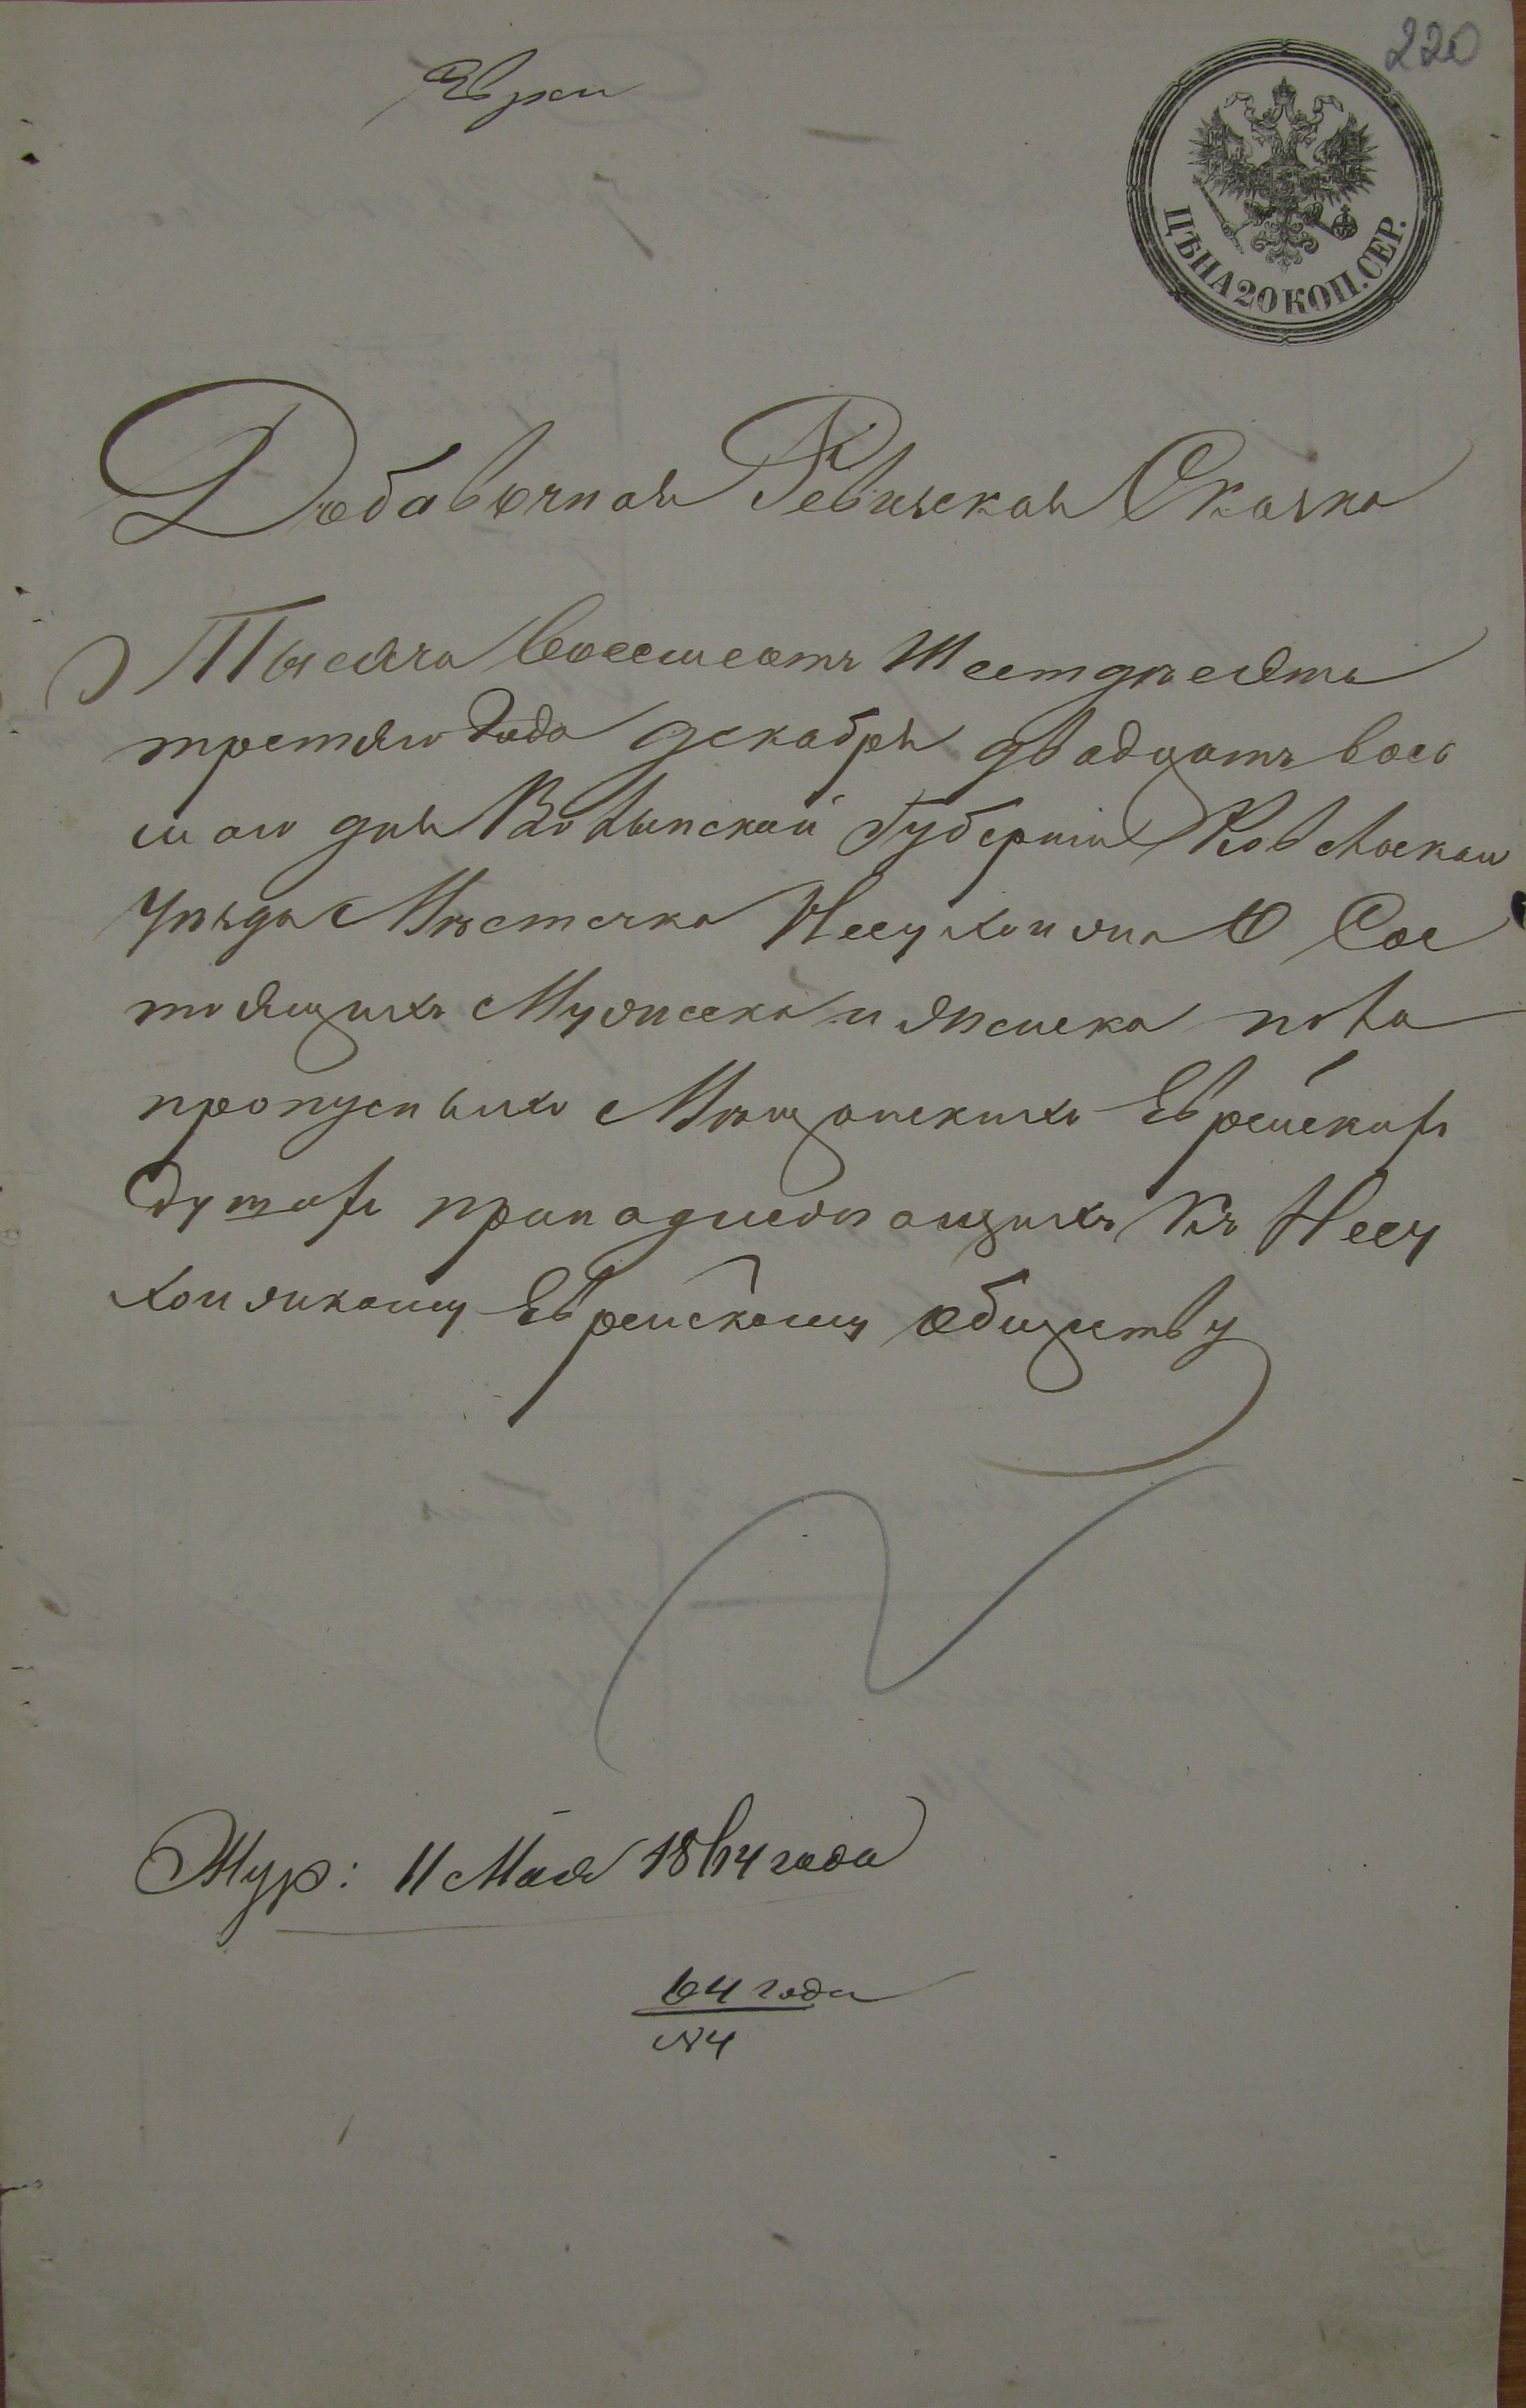 220
Евреи
ЦѢНА 20 КОП. СЕР.
Добавочная Ревизская Сказка
Тысяча восемсотъ Шестдесять
третяго Года декабря двадцать вось
маго дня Волынской Губерніи Ковельскаго
Уѣзда Мѣстечка Несухоижа О Сос
тоящихъ Мужеска и женска пола
пропусныхъ Мѣщанскихъ Еврейскихъ
Душахъ принадлежащихъ Къ Несу
хоижскому Еврейскому обществу
Жур: 11 Мая 1864 года
64 года
№4